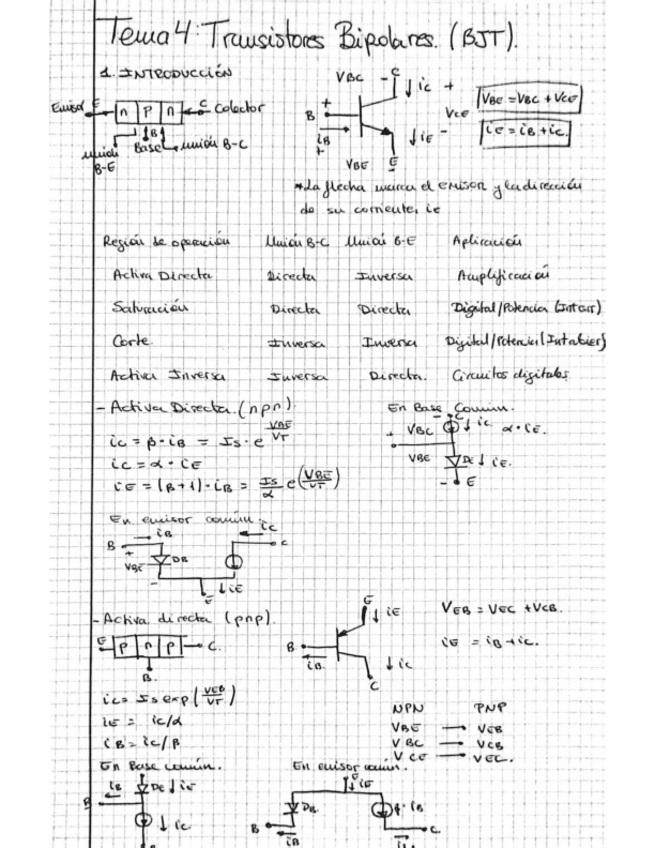 Tema 4: Transistores Bipolares. (BJT).
1. INTRODUCCIÓN
Emisor E n p n C Colector
B
unión B-E Base unión B-C
VBC - C iC +
B + iB + VCE
VBE E iE -
VBE = VBC + VCE
iE = iB + iC.
*La flecha marca el emisor y la dirección
de su corriente, iE
Región de operación Unión B-C Unión B-E Aplicación
Activa Directa Directa Inversa Amplificación
Saturación Directa Directa Digital/Potencia (Int
Corte Inversa Inversa Digital/Potencia (Int abier)
Activa Inversa Inversa Directa. Circuitos digitales
- Activa Directa. (npn).
iC = β · iB = Is · e VBE/VT
iC = α · iE
iE = (β+1) · iB = Is/α e(VBE/VT)
En Base Común.
- C
+ VBC iC α · iE.
VBE DE iE.
- E
En emisor común.
iB iC
B + C
VBE DB
- E iE
- Activa directa (pnp).
E p n p C.
B.
E iE
B iB
iC
C
VEB = VEC + VCB.
iE = iB + iC.
iC = Is exp(VEB/VT)
iE = iC/α
iB = iC/β
NPN PNP
VBE → VEB
VBC → VCB
VCE → VEC.
En Base común.
iB DE iE
B
iC
En emisor común.
E iE
DB β · iB
B C
iB